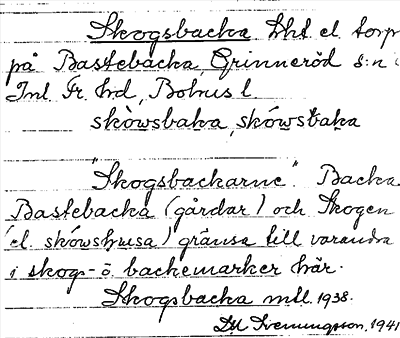 Skogsbacka Lht el. torp
på Bastebacka, Grinneröd s:n
Inl. Fr. hd, Bohus l.
skòwsbaka, skówsbaka
"Skogsbackarne". Backa
Bastebacka (gårdar) och Skogen
(el. skówshusa) gränsa till varandra
i skog- o. backemarker här.
Skogsbacka mtl. 1938.
Svenungsson, 1941